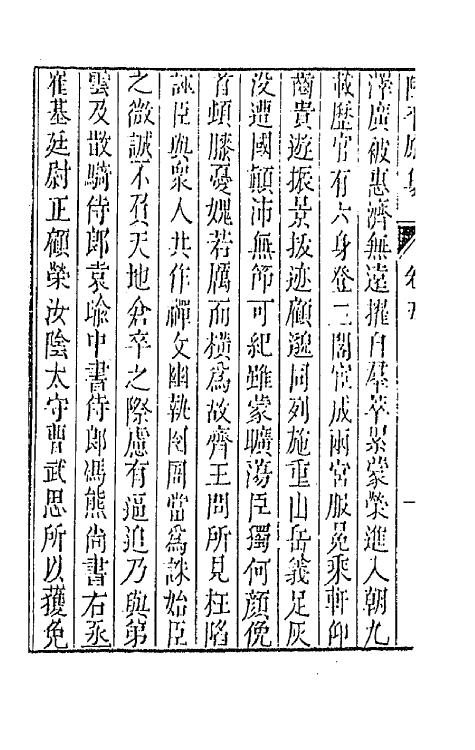 陸平原集 卷五 一
澤廣被惠濟無遠擢自羣萃累蒙榮進入朝九
載歷官有六身登三閣宦成兩宮服冕乘軒仰
齒貴遊振景拔迹顧邈同列施重山岳義足灰
没遭國顛沛無節可紀雖蒙曠蕩臣獨何顏俛
首頓膝憂媿若厲而橫爲故齊王冏所見枉陷
誣臣與衆人共作禪文幽執囹圄當爲誅始臣
之微誠不負天地倉卒之際慮有逼迫乃與弟
雲及散騎侍郎袁瑜中書侍郎馮熊尚書右丞
崔基廷尉正顧榮汝陰太守曹武思所以獲免